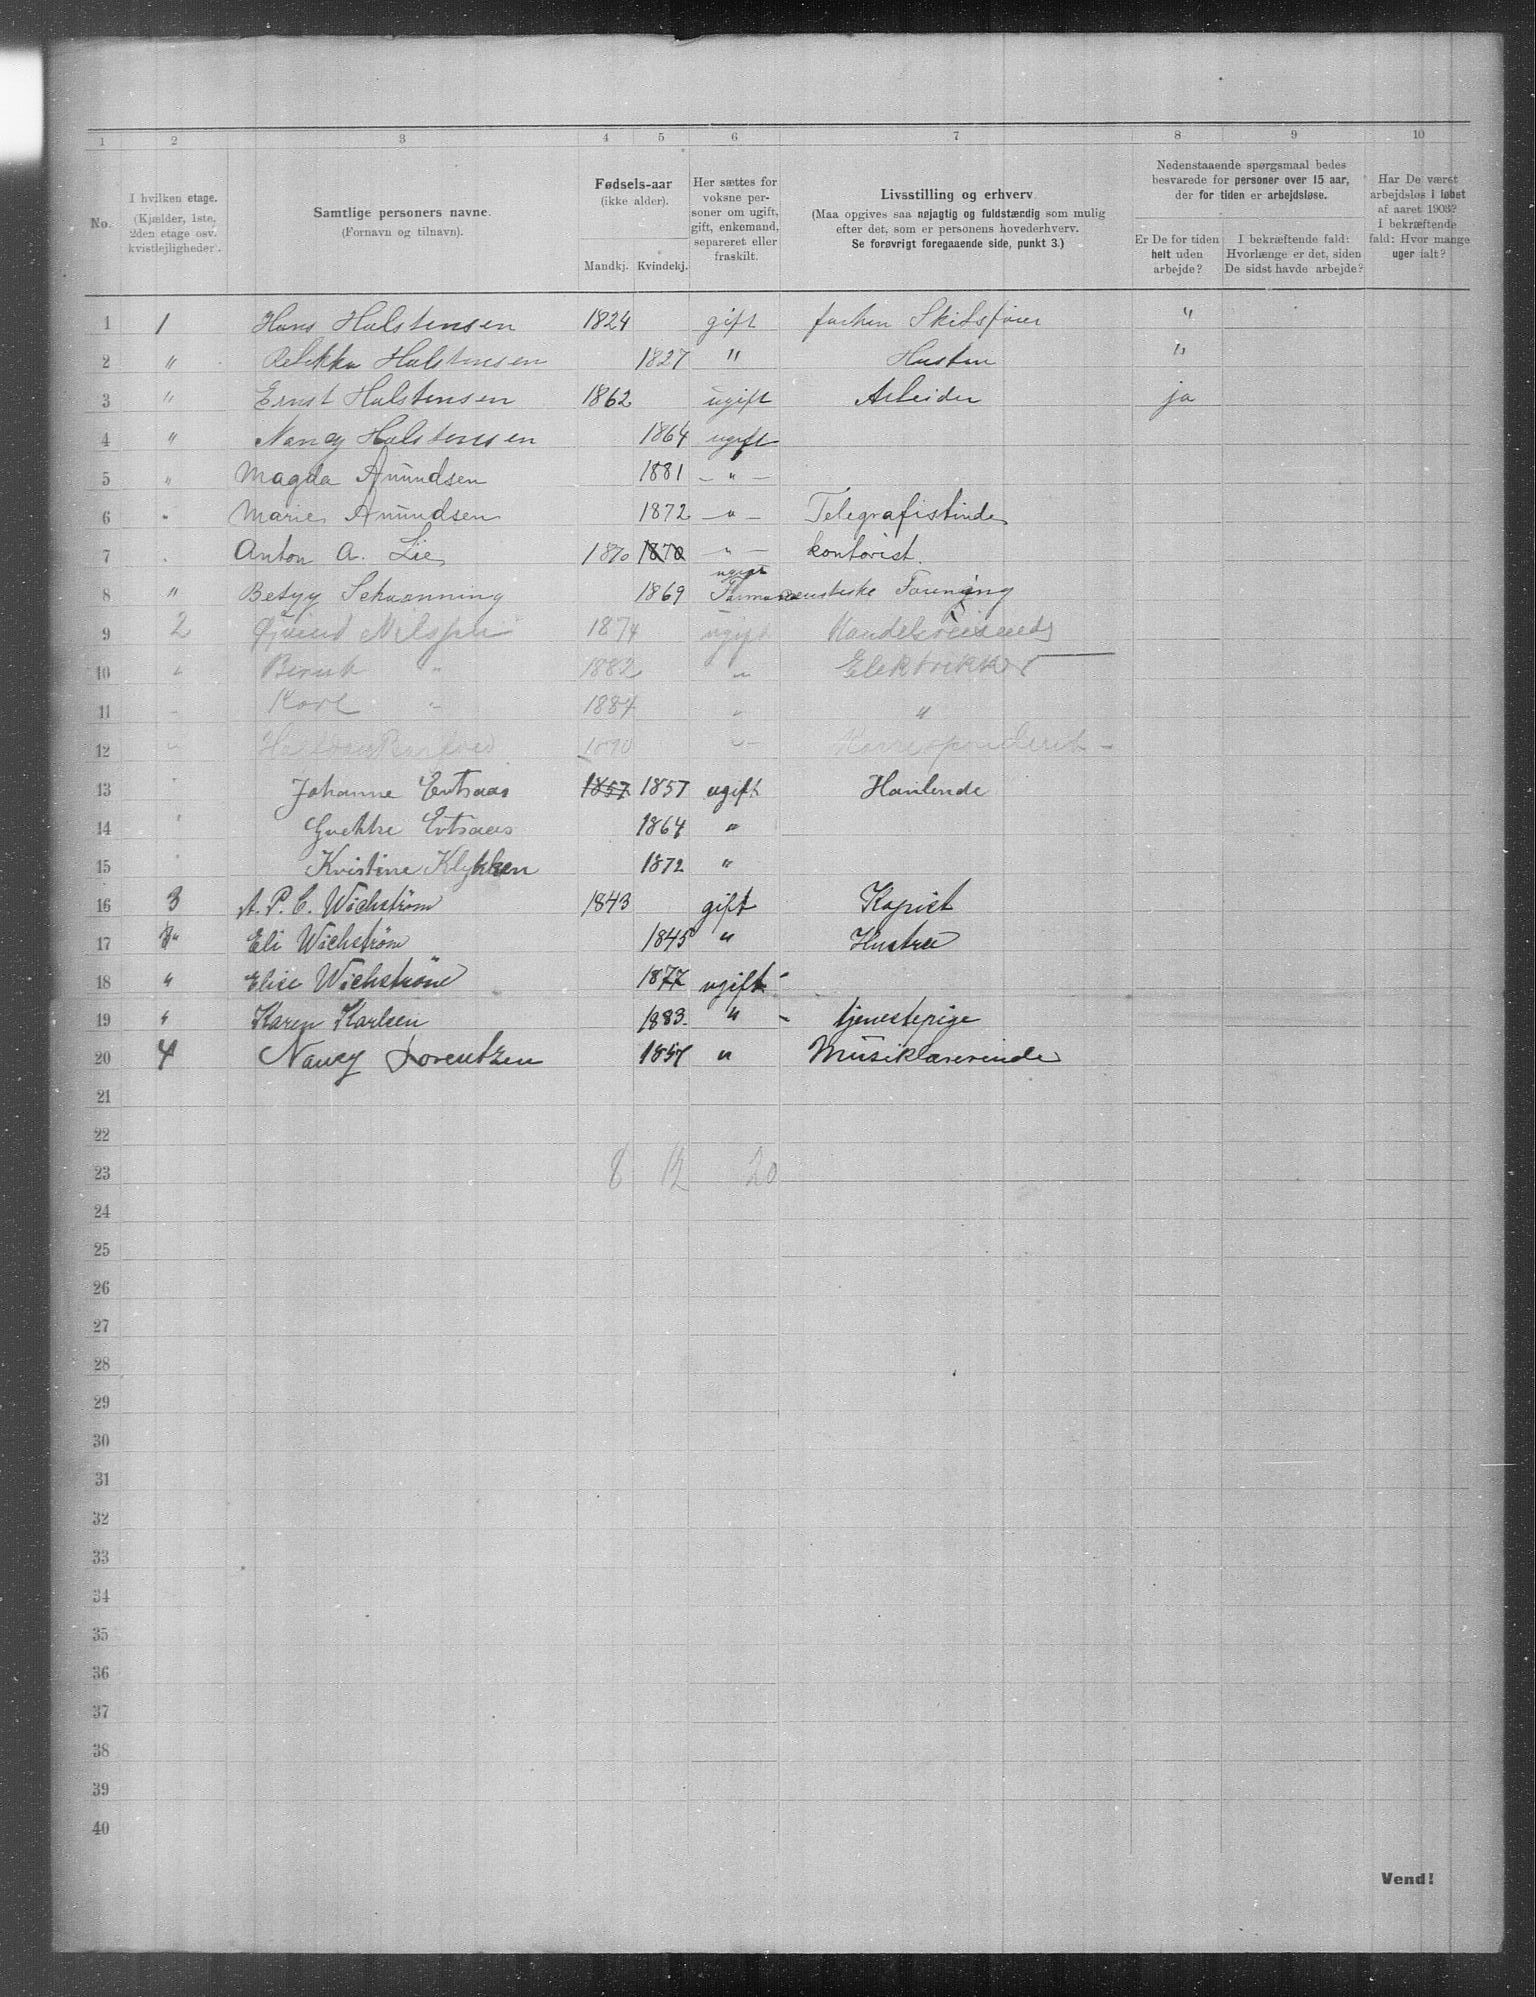 1 2 3 4 5 6 7 8 9 10
No.
I hvilken etage.
(Kjælder, 1ste,
2den etage osv.
kvistlejligheder.
Samtlige personers navne.
(Fornavn og tilnavn).
Fødsels-aar
(ikke alder).
Mandkj. Kvindekj.
Her sættes for
voksne per-
soner om ugift,
gift, enkemand,
separeret eller
fraskilt.
Livsstilling og erhverv
(Maa opgives saa nøjagtig og fuldstændig som mulig
efter det, som er personens hovederhverv.
Se forøvrigt foregaaende side, punkt 3.)
Nedenstaaende spørgsmaal bedes
besvarede for personer over 15 aar,
der for tiden er arbejdsløse.
Er De for tiden
helt uden
arbejde?
I bekræftende fald:
Hvorlænge er det, siden
De sidst havde arbejde?
Har De været
arbejdsløs i løbet
af aaret 1903?
I bekræftende
fald: Hvor mange
uger ialt?
1 1 Hans Halstensen 1824 gift "
2 " Halstensen 1827 " Hustru "
3 " Ernst Halstensen 1862 ugift Arbeider ja
4 " Nancy Halstensen 1864 ugift
5 " Magda Amundsen 1881 — " —
6 " Marie Amundsen 1872 — " — Telegrafistinde
7 Anton A. Lie 1870 1870 — " — kontorist.
8 " Betzy Schanning 1869 ugift Farmaceutiske Forening
9 2 Øivind Nilssen 1874 ugift Handelsreisende
10 " Bernt " 1882 " Elektrikker
11 Karl " 1884 " "
12 " 1870 " Korrespondent
13 " Johanne Entsaas 1857 1857 ugift Handlende
14 " Entsaas 1864 "
15 Kristine Klykken 1872 "
16 3 A. P. C. Wichstrøm 1843 gift Kopist
17 " Eli Wichstrøm 1845 " Hustru
18 " Elise Wichstrøm 1877 ugift
19 " Karen Karlsen 1883 " tjenestepige
20 4 Nancy Lorentzen 1857 " Musiklærerinde
21
22
23 8 12 20
24
25
26
27
28
29
30
31
32
33
34
35
36
37
38
39
40
Vend!